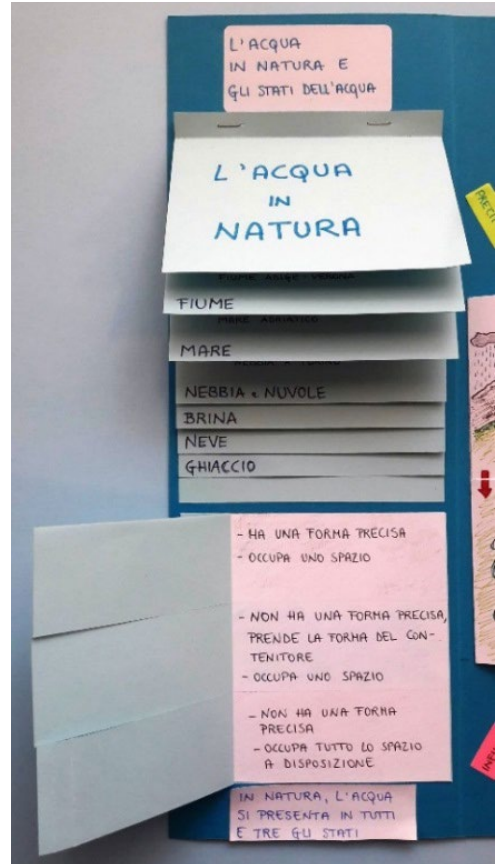 L'ACQUA
IN NATURA E
GLI STATI DELL'ACQUA
L'ACQUA
IN
NATURA
FIUME
MARE ADRIATICO
MARE
NEBBIA e NUVOLE
BRINA
NEVE
GHIACCIO
- HA UNA FORMA PRECISA
- OCCUPA UNO SPAZIO
- NON HA UNA FORMA PRECISA,
PRENDE LA FORMA DEL CON-
TENITORE
- OCCUPA UNO SPAZIO
- NON HA UNA FORMA
PRECISA
- OCCUPA TUTTO LO SPAZIO
A DISPOSIZIONE
IN NATURA, L'ACQUA
SI PRESENTA IN TUTTI
E TRE GLI STATI